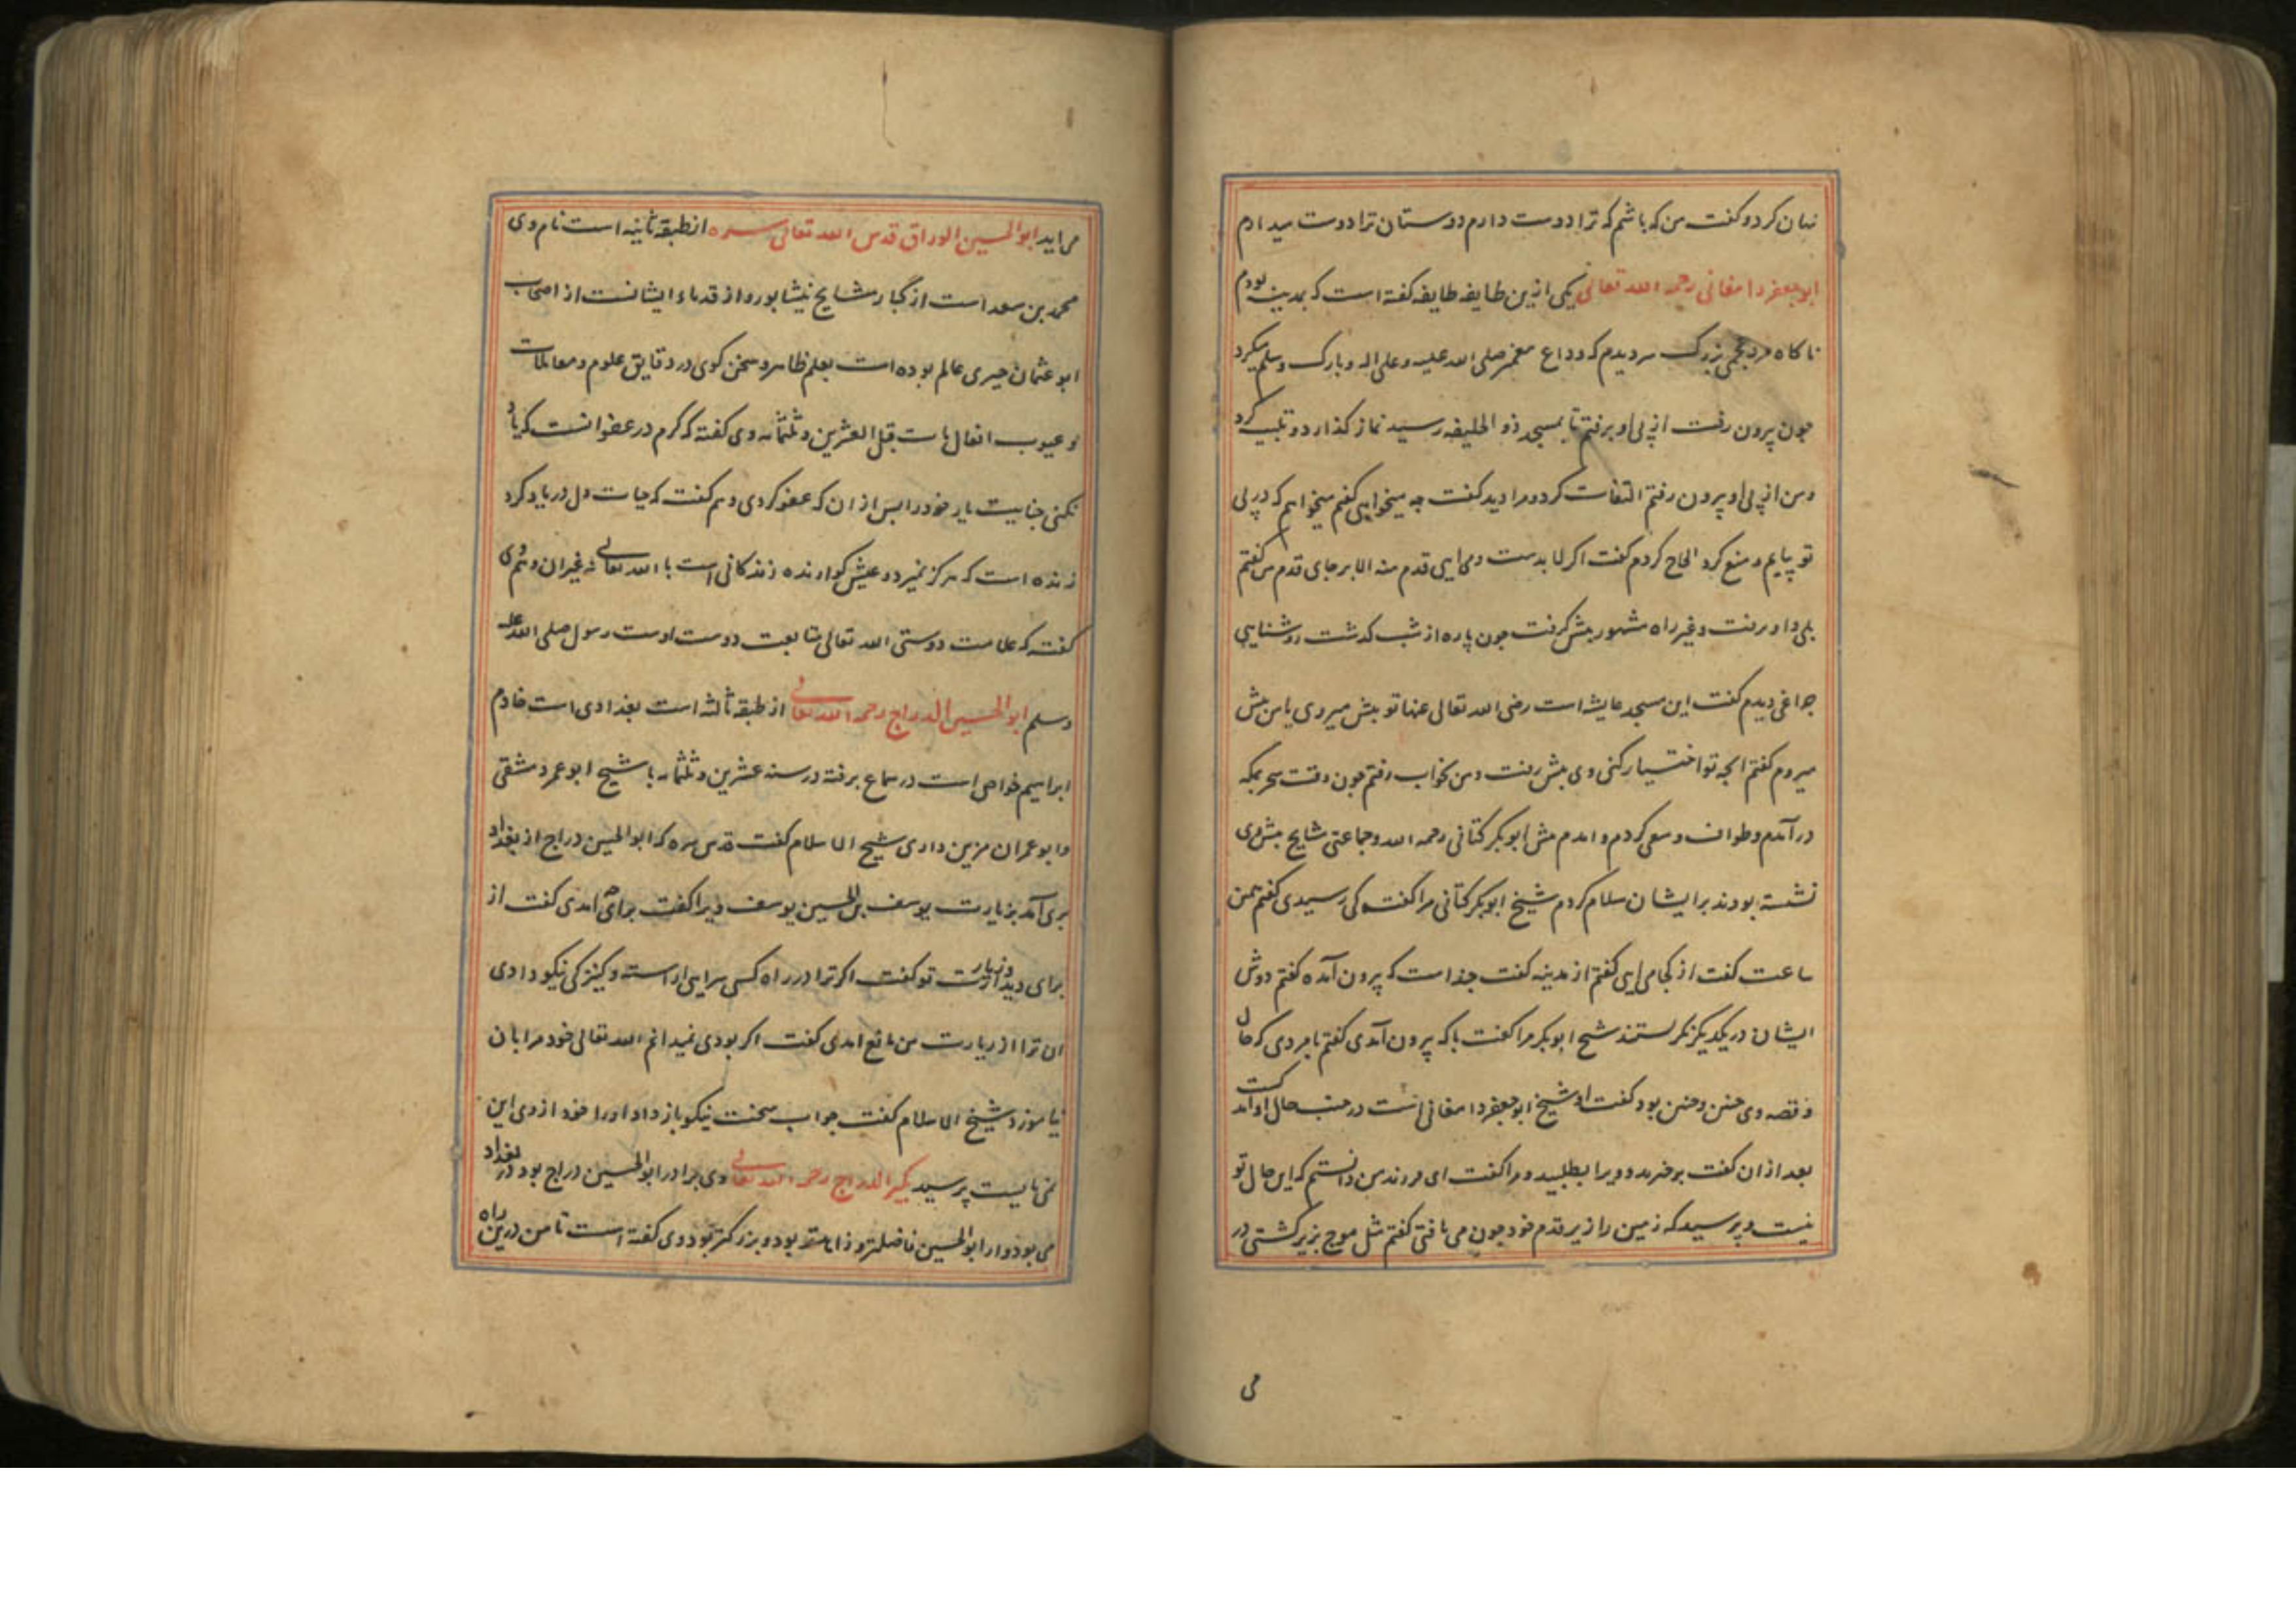 نهان کرد و کفت من که باشم که ترا دوست دارم دوستان ترا دوست میدارم
ابوجعفر دامغانی رحمه الله تعالی یکی ازین طایفه طایفه کفته است که بمدینه بودم
ناکاه مرد عجمی بزرک سر دیدم که وداع پیغمبر صلی الله علیه وعلی اله وبارک وسلم میکرد
جون بیرون رفت از پی او برفتم تا بمسجد ذو الحلیفه رسید نماز کذارد و تلبیه کرد
ومن از پی او بیرون رفتم التفات کرد و مرا دید کفت جه میخواهی کفتم میخواهم که در پی
تو بیایم و منع کرد الحاح کردم کفت اکر لا بدست ومی ایی قدم منه الا بر جای قدم من کفتم
بلی و او برفت و غیر راه مشهور پیش کرفت جون پاره از شب کذشت روشنایی
جراغی دیدم کفت این مسجد عایشه است رضی الله تعالی عنها تو پیش میروی یا من پیش
میروم کفتم انجه تو اختیار کنی وی پیش رفت ومن بخواب رفتم جون وقت سحر بمکه
در آمدم وطواف وسعی کردم و امدم پیش ابوبکر کتانی رحمه الله وجماعتی مشایخ پیش وی
نشسته بودند بر ایشان سلام کردم شیخ ابوبکر کتانی مرا کفت کی رسیدی کفتم همین
ساعت کفت از کجا می ایی کفتم از مدینه کفت جند است که بیرون آمده کفتم دوش
ایشان در یکدیکر نکرستند شیخ ابوبکر مرا کفت با که بیرون آمدی کفتم با مردی که حال
و قصه وی جنین و جنین بود کفت او شیخ ابوجعفر دامغانی است در جنب حال او اندکست
بعد ازان کفت برخیزید و ویرا بطلبید و مرا کفت ای فرزند من دانستم که این حال تو
نیست و پرسید که زمین را زیر قدم خود جون می یافتی کفتم مثل موج بزیر کشتی در
می
می اید ابوالحسین الوراق قدس الله تعالی سره از طبقه ثانیه است نام وی
محمد بن سعد است از کبار مشایخ نیشابور و از قدماء ایشانست از اصحاب
ابو عثمان حیری عالم بوده است بعلم ظاهر و سخن کوی در دقایق علوم و معاملات
و عیوب افعال مات قبل العشرین و ثلثمائه وی کفته که کرم در عفو انست که یاد
نکنی جنایت یار خود را پس از ان که عفو کردی و هم کفت که حیات دل در یاد کرد
زنده است که هرکز نمیرد و عیش کوارنده زندکانی است با الله تعالی نه غیر ان و هم وی
کفته که علامت دوستی الله تعالی متابعت دوست اوست رسول صلی الله علیه
وسلم ابوالحسین الدراج رحمه الله تعالی از طبقه ثالثه است بغدادی است خادم
ابراهیم خواص است در سماع برفته در سنه عشرین و ثلثمائه با شیخ ابو عمر دمشقی
وابو عمران مزین داری شیخ الاسلام کفت قدس سره که ابوالحسین دراج از بغداد
بری آمد بزیارت یوسف بن الحسین یوسف ویرا کفت برای چه امدی کفت از
برای دیدار و زیارت تو کفت اکر ترا در راه کسی سرایی اراسته و کنیزکی نیکو دادی
ان ترا از زیارت من مانع امدی کفت اکر بودی نمیدانم الله تعالی خود مرا بان
نیازمود شیخ الاسلام کفت جواب سخت نیکو باز داد او را خود از وی این
نمی بایست پرسید بکیر الدراج رحمه الله تعالی وی برادر ابوالحسین دراج بود در بغداد
می بود و از ابوالحسین فاضلتر و زاهدتر بود و بزرکتر بود وی کفته است تا من درین راه